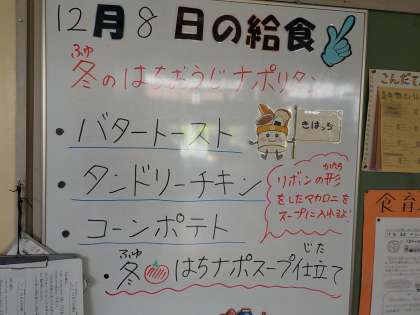 12月8日の給食
ふゆ
冬のはちおうじナポリタン
・バタートースト
きはっち
・タンドリーチキン
かたち
リボンの形
をしたマカロニを
スープに入れるよ!
・コーンポテト
ふゆ
じた
・冬はちナポスープ仕立て
こんだて
食育